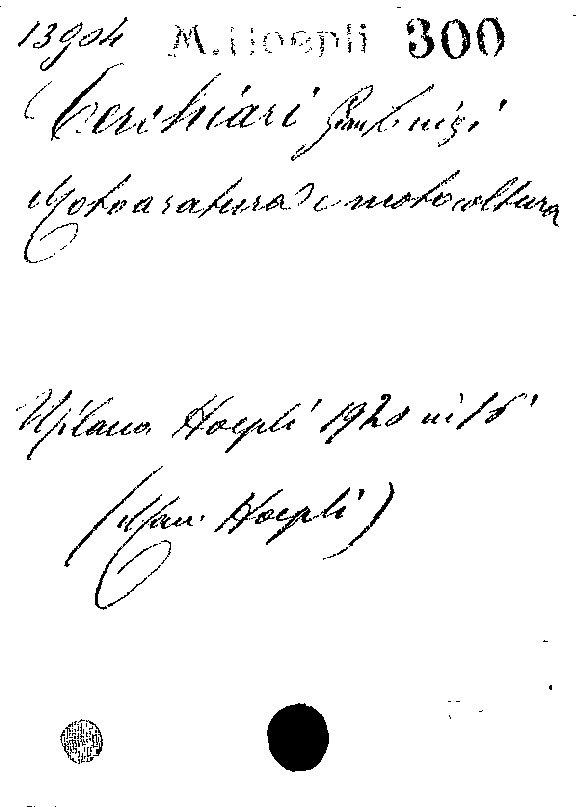 13904 M. Hoepli 300
Cerchiari Gian Luigi
Motoaratura e motocoltura
Milano Hoepli 1920 in 16°
(Man. Hoepli)